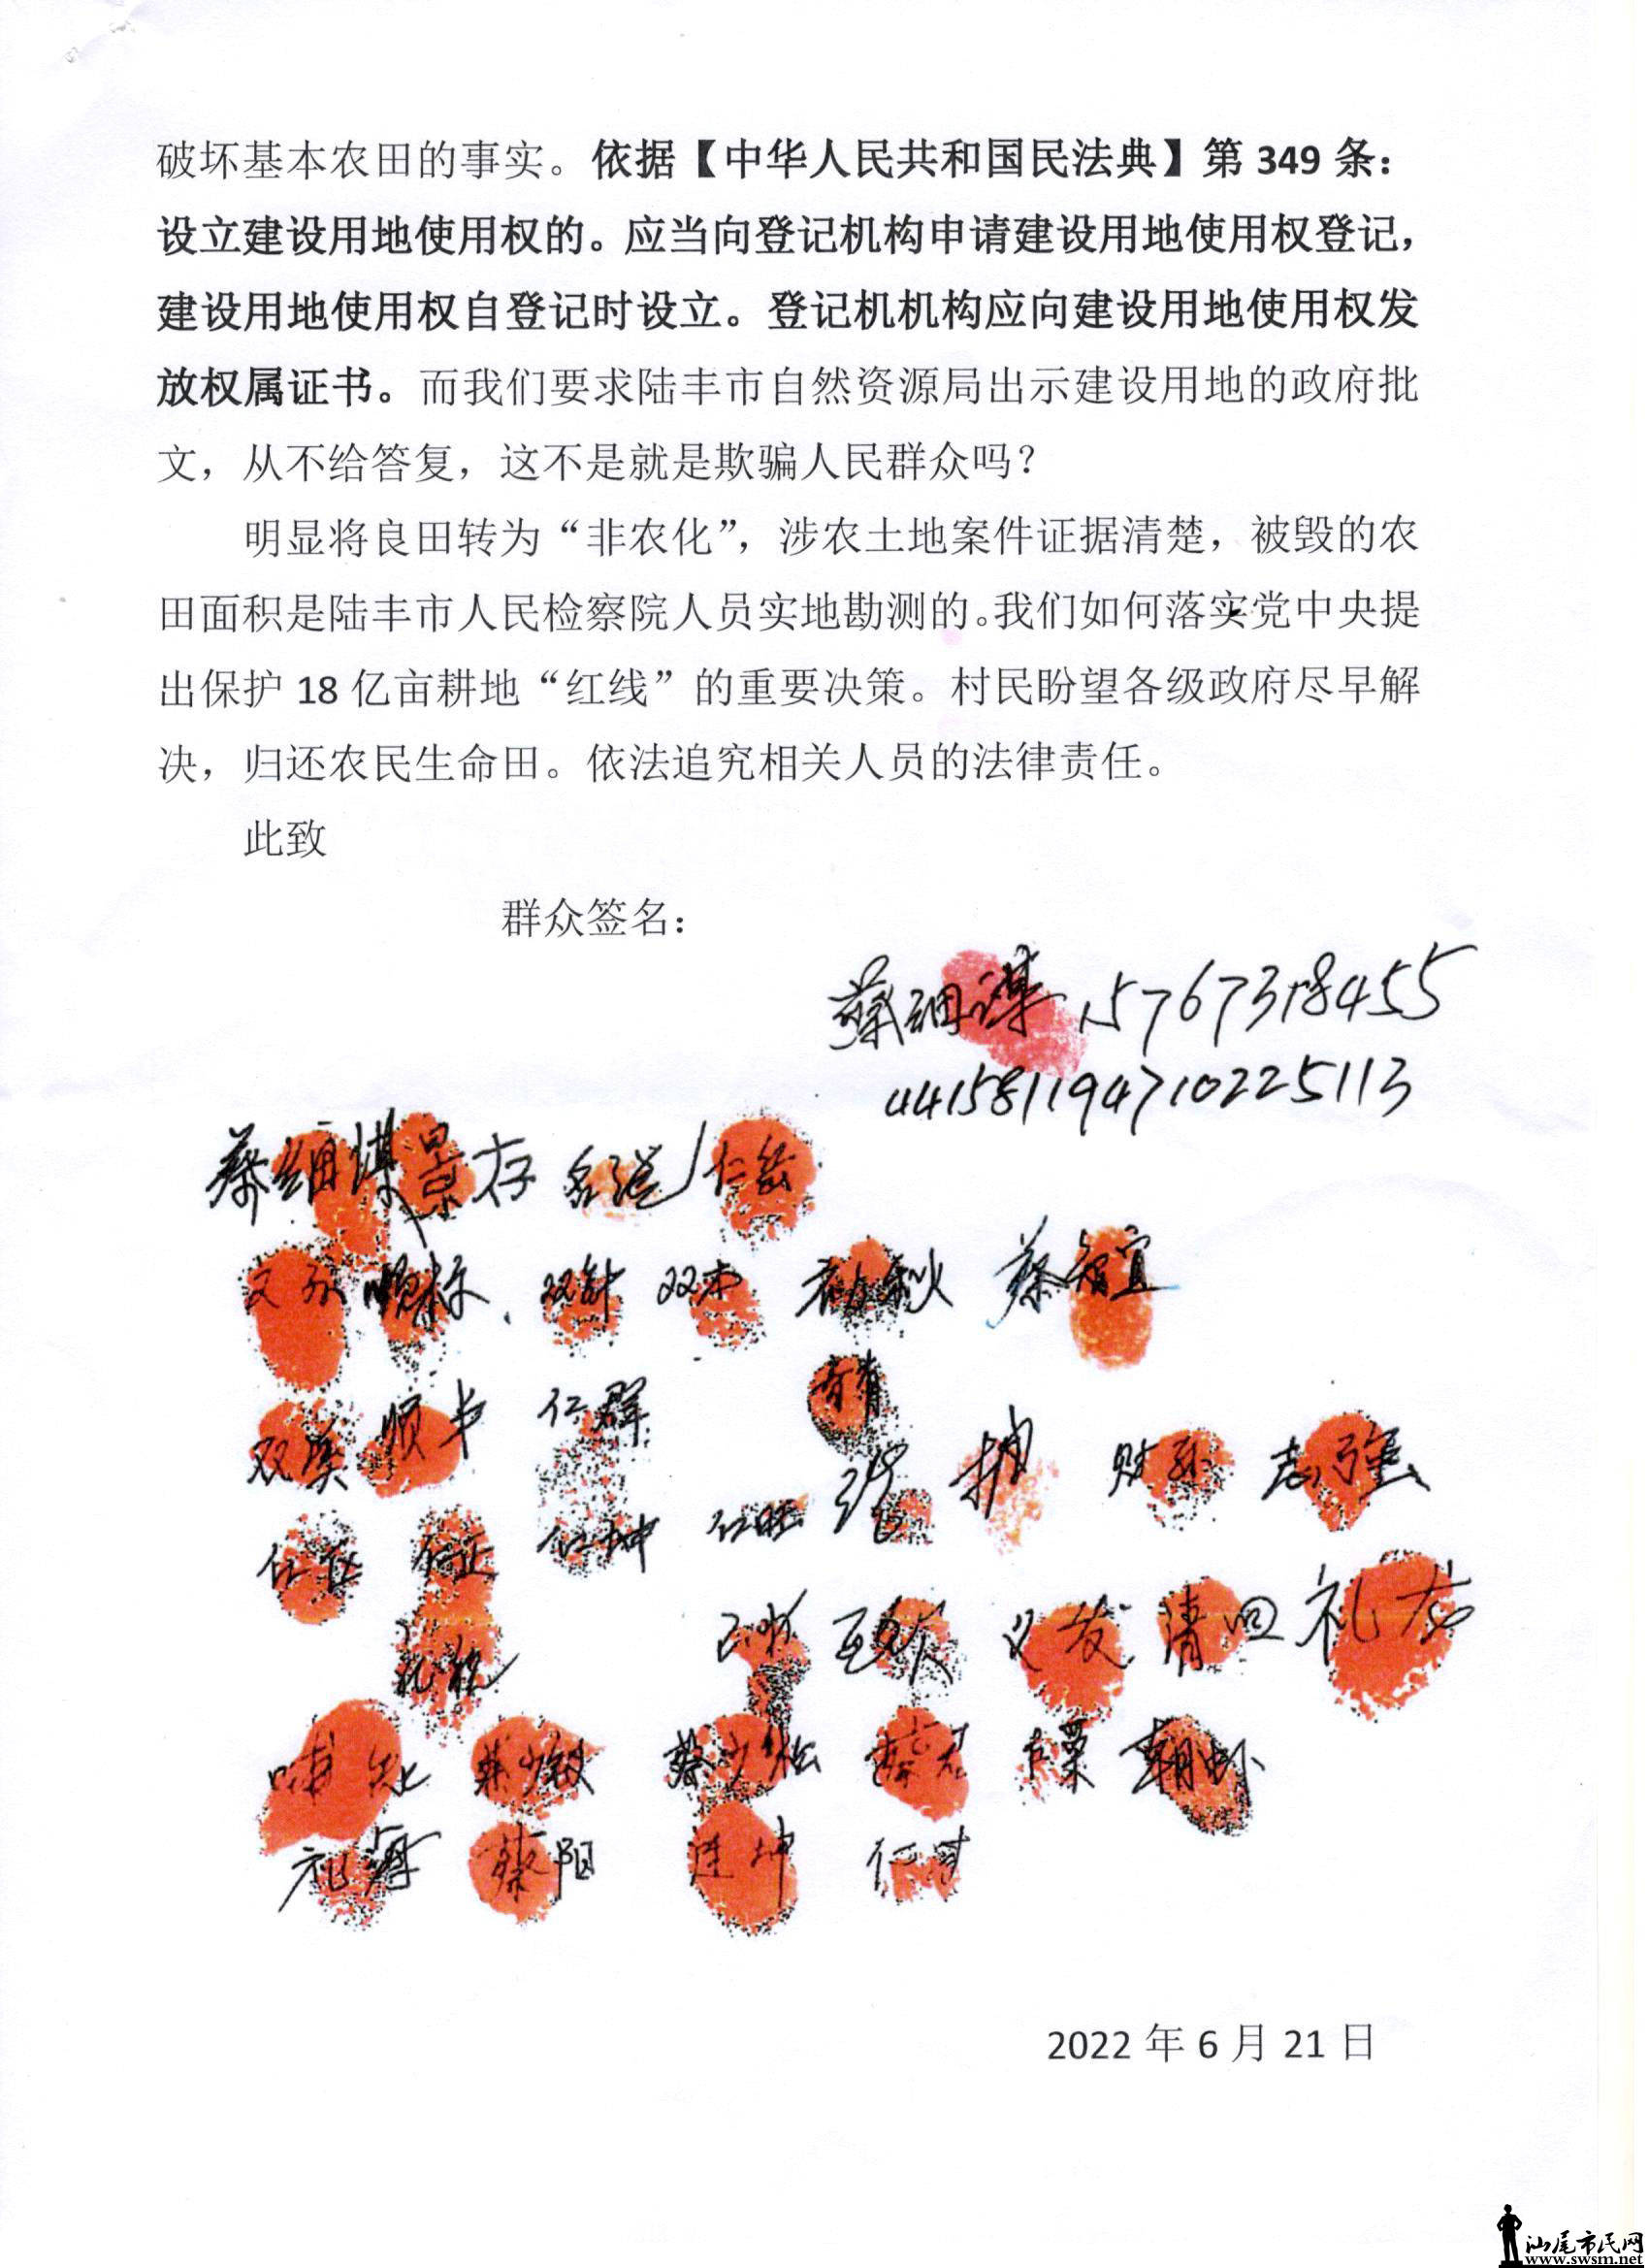 破坏基本农田的事实。依据【中华人民共和国民法典】第 349 条：
设立建设用地使用权的。应当向登记机构申请建设用地使用权登记，
建设用地使用权自登记时设立。登记机机构应向建设用地使用权发
放权属证书。而我们要求陆丰市自然资源局出示建设用地的政府批
文，从不给答复，这不是就是欺骗人民群众吗？
明显将良田转为“非农化”，涉农土地案件证据清楚，被毁的农
田面积是陆丰市人民检察院人员实地勘测的。我们如何落实党中央提
出保护 18 亿亩耕地“红线”的重要决策。村民盼望各级政府尽早解
决，归还农民生命田。依法追究相关人员的法律责任。
此致
群众签名：
蔡细谋 15767318455
441581194710225113
蔡细谋 景存
顺标 双针 蔡智宜
双英 仁群
财 志强
仁正 仁坤 仁旺
义发 清 礼龙
蔡少松
蔡阳 连坤 仁才
2022 年 6 月 21 日
汕尾市民网
www.swsm.net